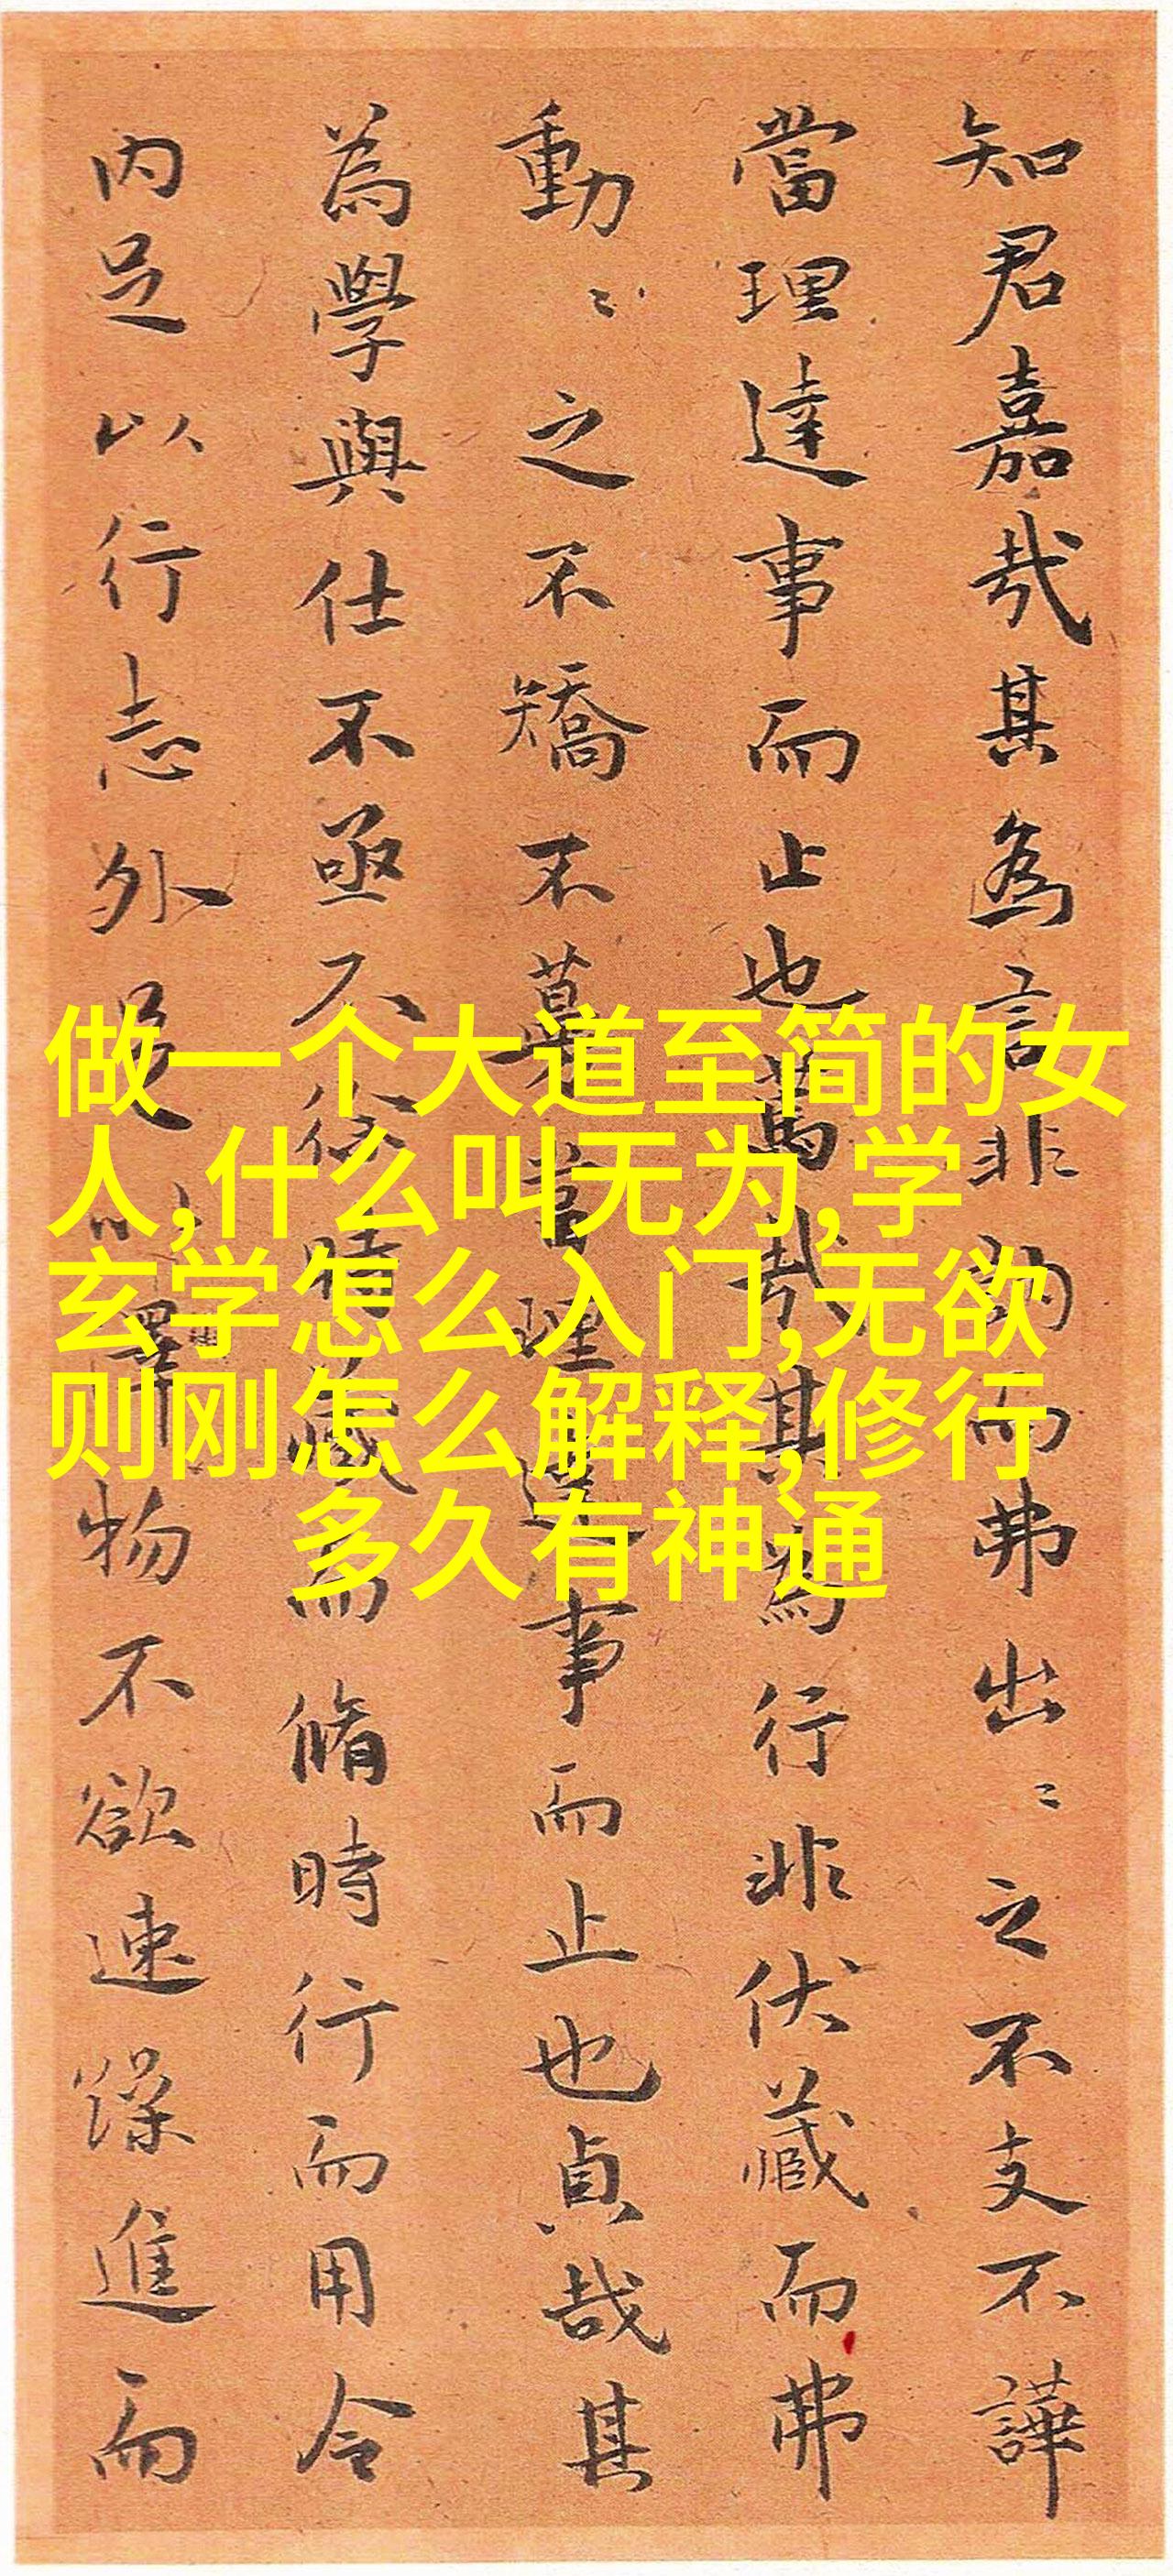 知君嘉哉其為言非訥而弗出〻之不支不譁
當理達事而止也篤哉其為行非伏藏而弗
動〻之不矯不當理達事而止也貞哉其
為學與仕不亟不徐時藏而脩時行而用令
内足以行志外足以澤物不欲速躁進而
做一个大道至简的女
人,什么叫无为,学
玄学怎么入门,无欲
则刚怎么解释,修行
多久有神通